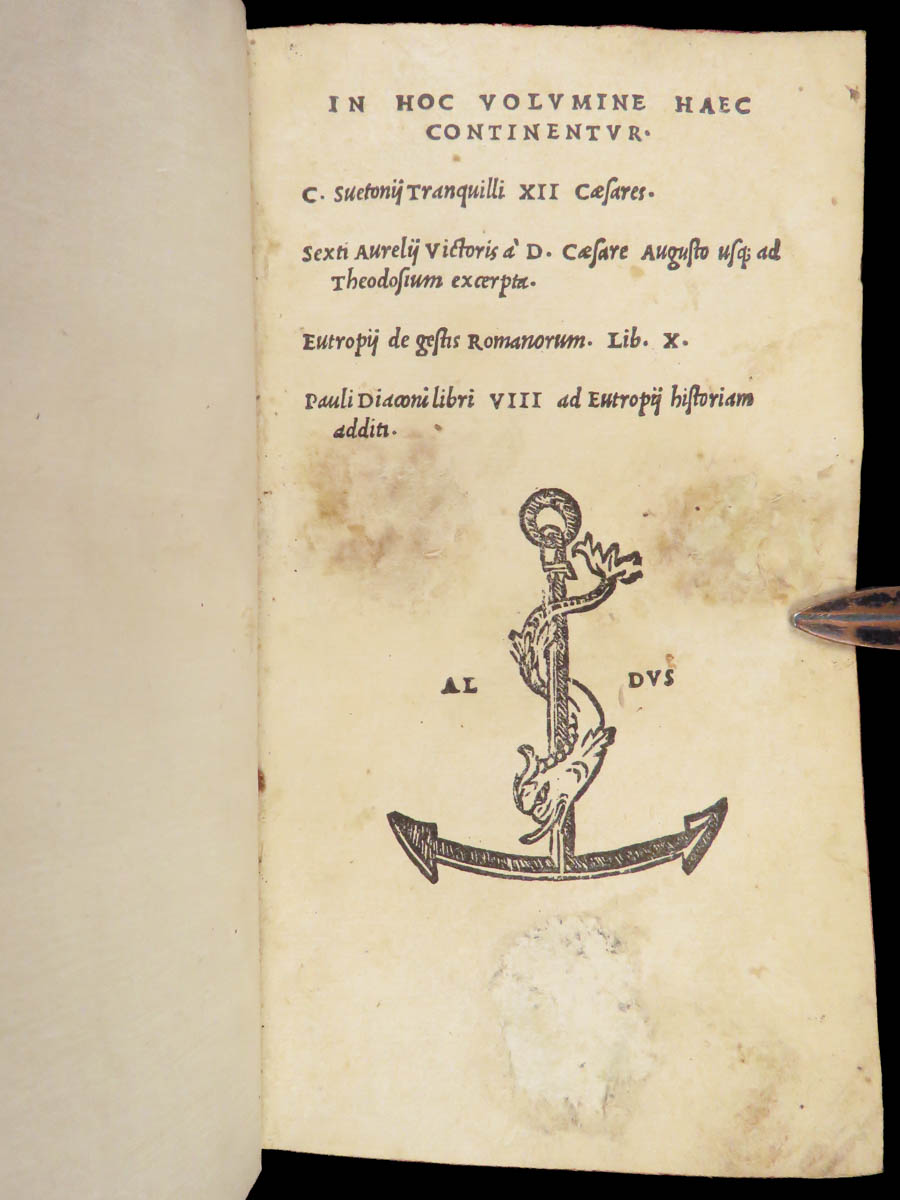 IN HOC VOLVMINE HAEC
CONTINENTVR.
C. Suetonij Tranquilli XII Cæſares.
Sexti Aurelij Victoris à D. Cæſare Auguſto uſq; ad
Theodoſium excerpta.
Eutropij de geſtis Romanorum. Lib. X.
Pauli Diaconi libri VIII ad Eutropij hiſtoriam
additi.
AL DVS